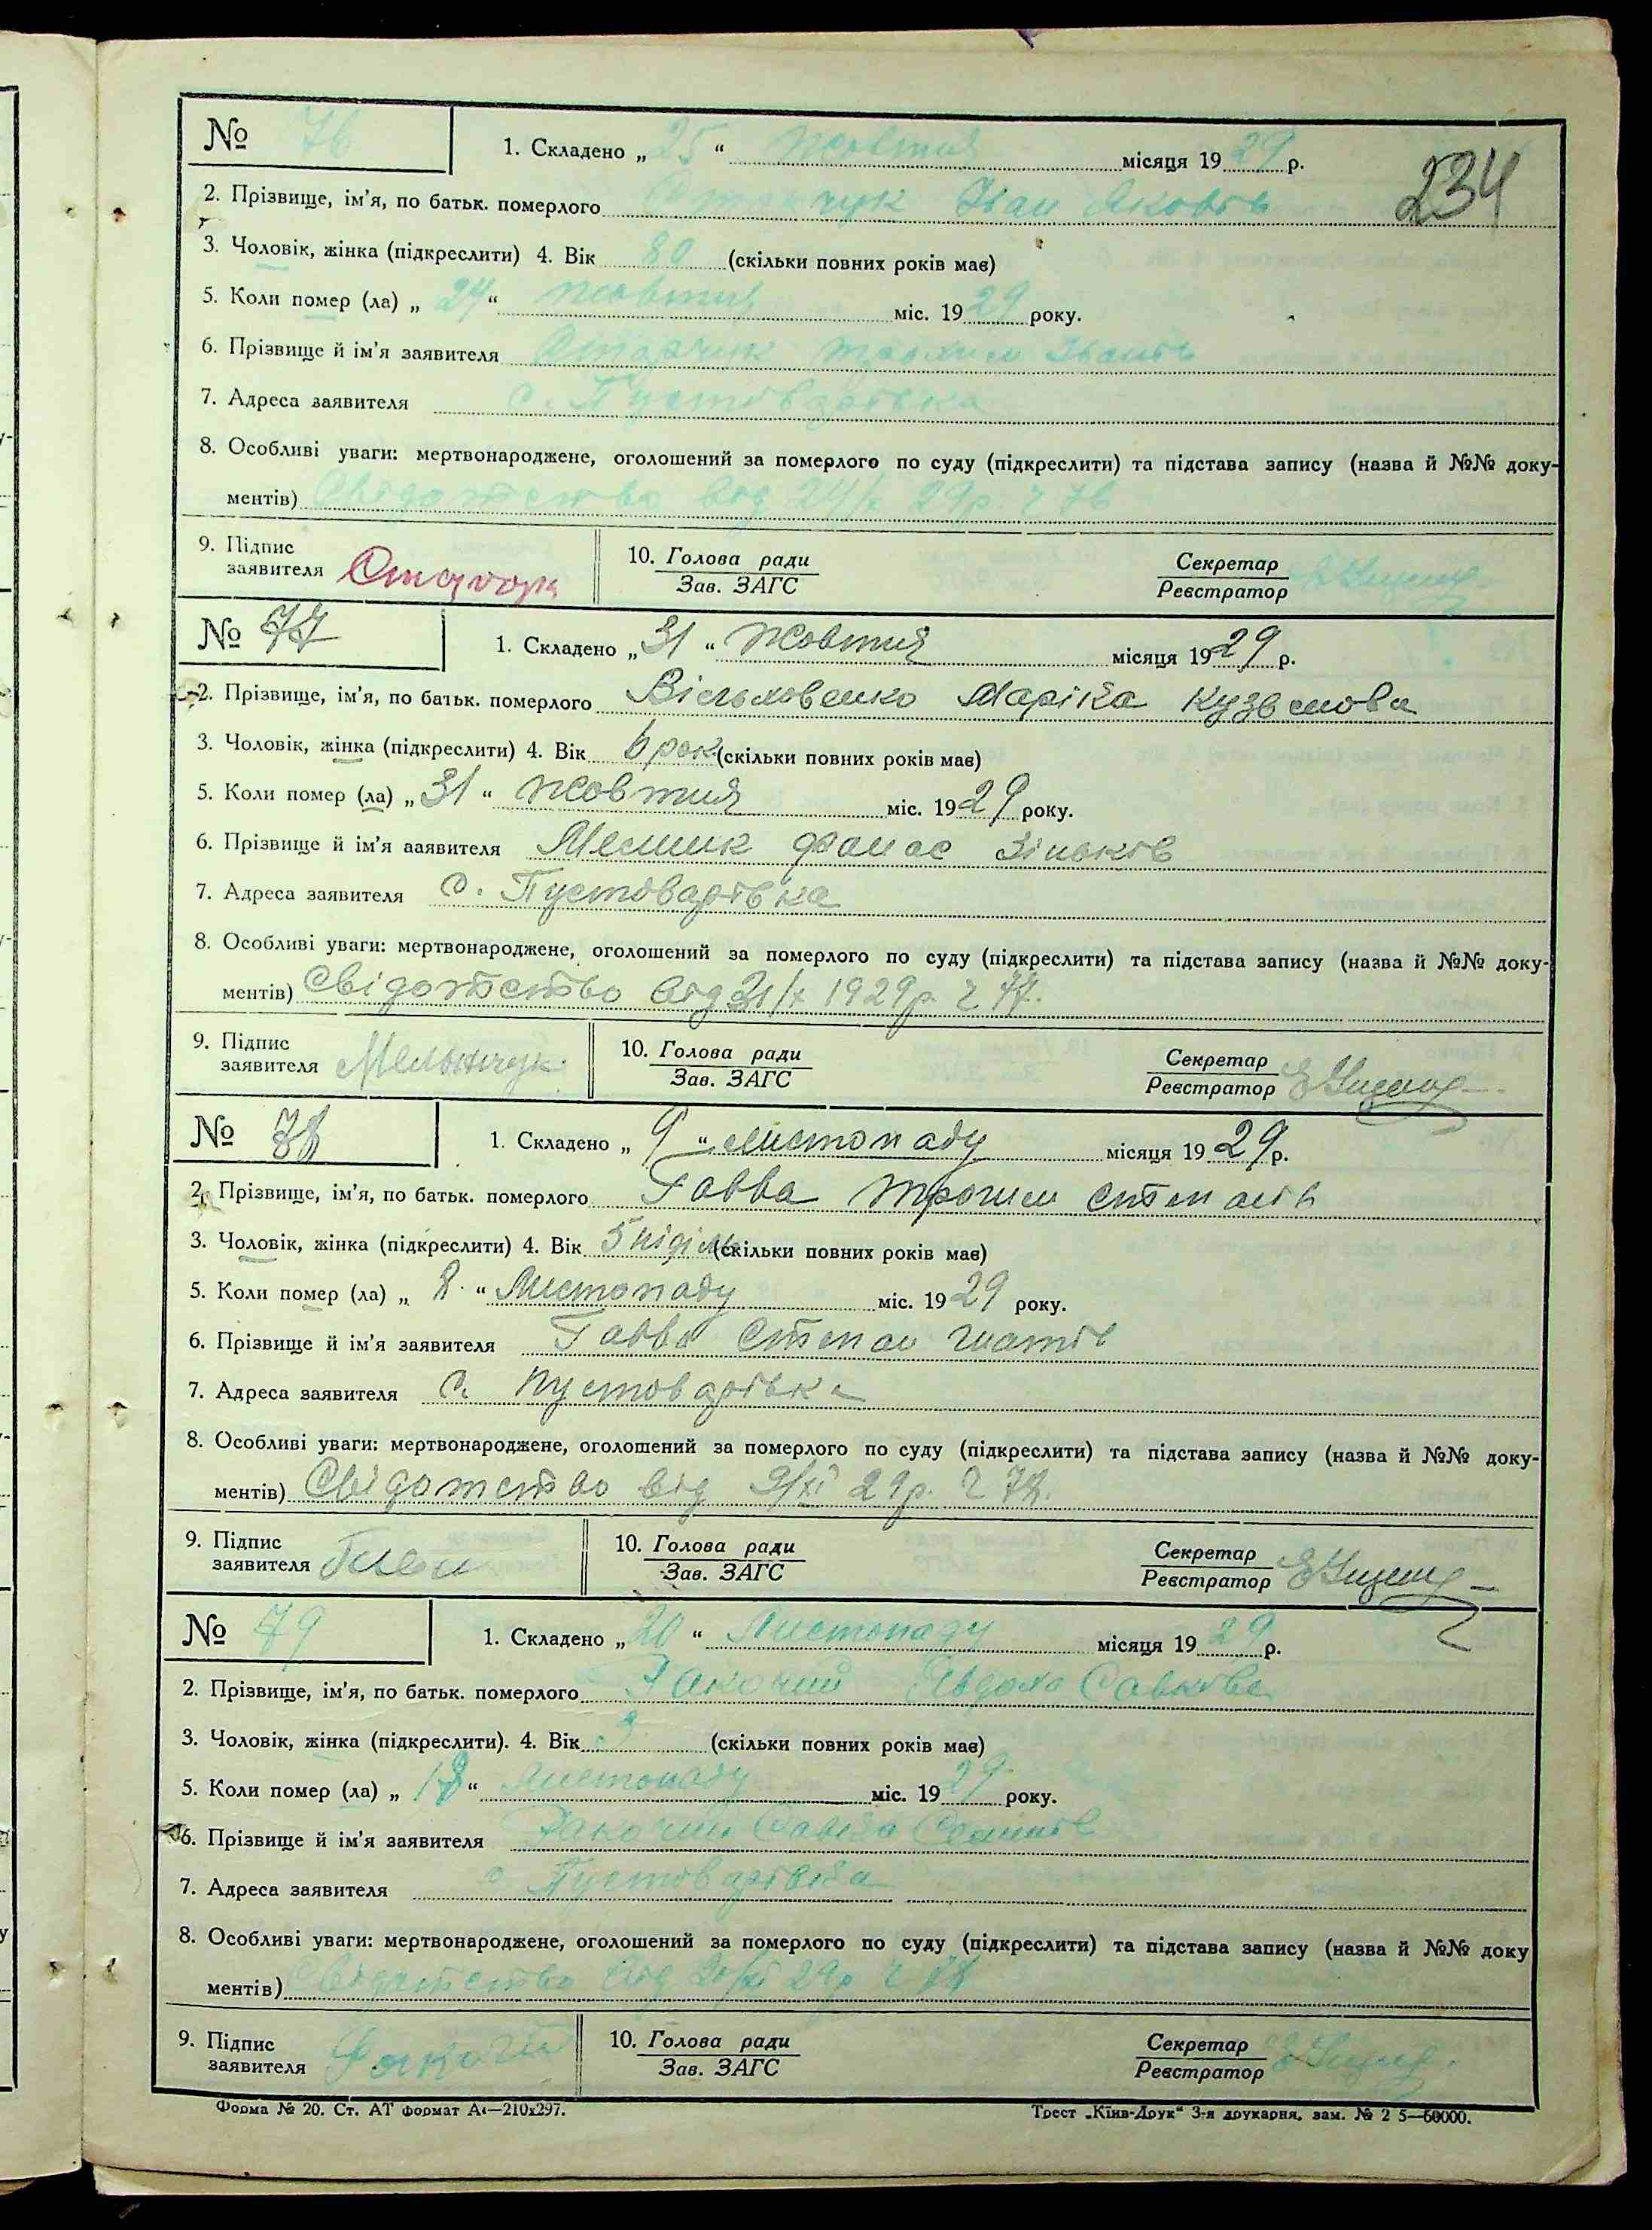 234
№ 76 1. Складено „ 25 “ Жовтня місяця 19 29 р.
2. Прізвище, ім'я, по батьк. померлого Іван Яковів
3. Чоловік, жінка (підкреслити) 4. Вік 80 (скільки повних років має)
5. Коли помер (ла) „ 24 “ жовтня міс. 19 29 року.
6. Прізвище й ім'я заявителя Іванів
7. Адреса заявителя с. Пустоварівка
8. Особливі уваги: мертвонароджене, оголошений за померлого по суду (підкреслити) та підстава запису (назва й №№ доку-
ментів) Свідотство від 24/X 29р. ч 76
9. Підпис 10. Голова ради Секретар
заявителя Зав. ЗАГС Реєстратор
№ 77 1. Складено „ 31 “ Жовтня місяця 19 29 р.
2. Прізвище, ім'я, по батьк. померлого Вільховенко Марійка Кузьмова
3. Чоловік, жінка (підкреслити) 4. Вік 6 рок (скільки повних років має)
5. Коли помер (ла) „ 31 “ Жовтня міс. 19 29 року.
6. Прізвище й ім'я ааявителя Фанас Зіньків
7. Адреса заявителя с. Пустоварівка
8. Особливі уваги: мертвонароджене, оголошений за померлого по суду (підкреслити) та підстава запису (назва й №№ доку-
ментів) Свідотство від 31/X 1929р. ч 77.
9. Підпис 10. Голова ради Секретар
заявителя Мельничук Зав. ЗАГС Реєстратор
№ 78 1. Складено „ 9 “ листопаду місяця 19 29 р.
2. Прізвище, ім'я, по батьк. померлого Гавва Трохим Степанів
3. Чоловік, жінка (підкреслити) 4. Вік 5 нідїль (скільки повних років має)
5. Коли помер (ла) „ 8 “ Листопаду міс. 19 29 року.
6. Прізвище й ім'я заявителя Гавва Степан Гнатів
7. Адреса заявителя с. Пустоварівка
8. Особливі уваги: мертвонароджене, оголошений за померлого по суду (підкреслити) та підстава запису (назва й №№ доку-
ментів) Свідотство від 9/XI 29р. ч 78.
9. Підпис 10. Голова ради Секретар
заявителя Гавва Зав. ЗАГС Реєстратор
№ 79 1. Складено „ 20 “ Листопаду місяця 19 29 р.
2. Прізвище, ім'я, по батьк. померлого Явдоха Савківа
3. Чоловік, жінка (підкреслити). 4. Вік 3 (скільки повних років має)
5. Коли помер (ла) „ 18 “ листопаду міс. 19 29 року.
6. Прізвище й ім'я заявителя Савка
7. Адреса заявителя с. Пустоварівка
8. Особливі уваги: мертвонароджене, оголошений за померлого по суду (підкреслити) та підстава запису (назва й №№ доку
ментів) Свідотство від 20/XI 29р ч
9. Підпис 10. Голова ради Секретар
заявителя Зав. ЗАГС Реєстратор
Форма № 20. Ст. АТ формат А4—210x297. Трест „Київ-Друк“ 3-я друкарня, зам. № 2 5—60000.